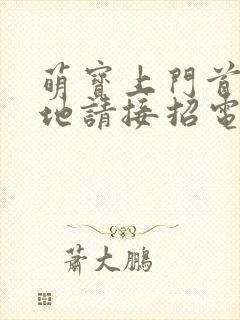 萌寶上門首
地請接招電
蕭大鵬